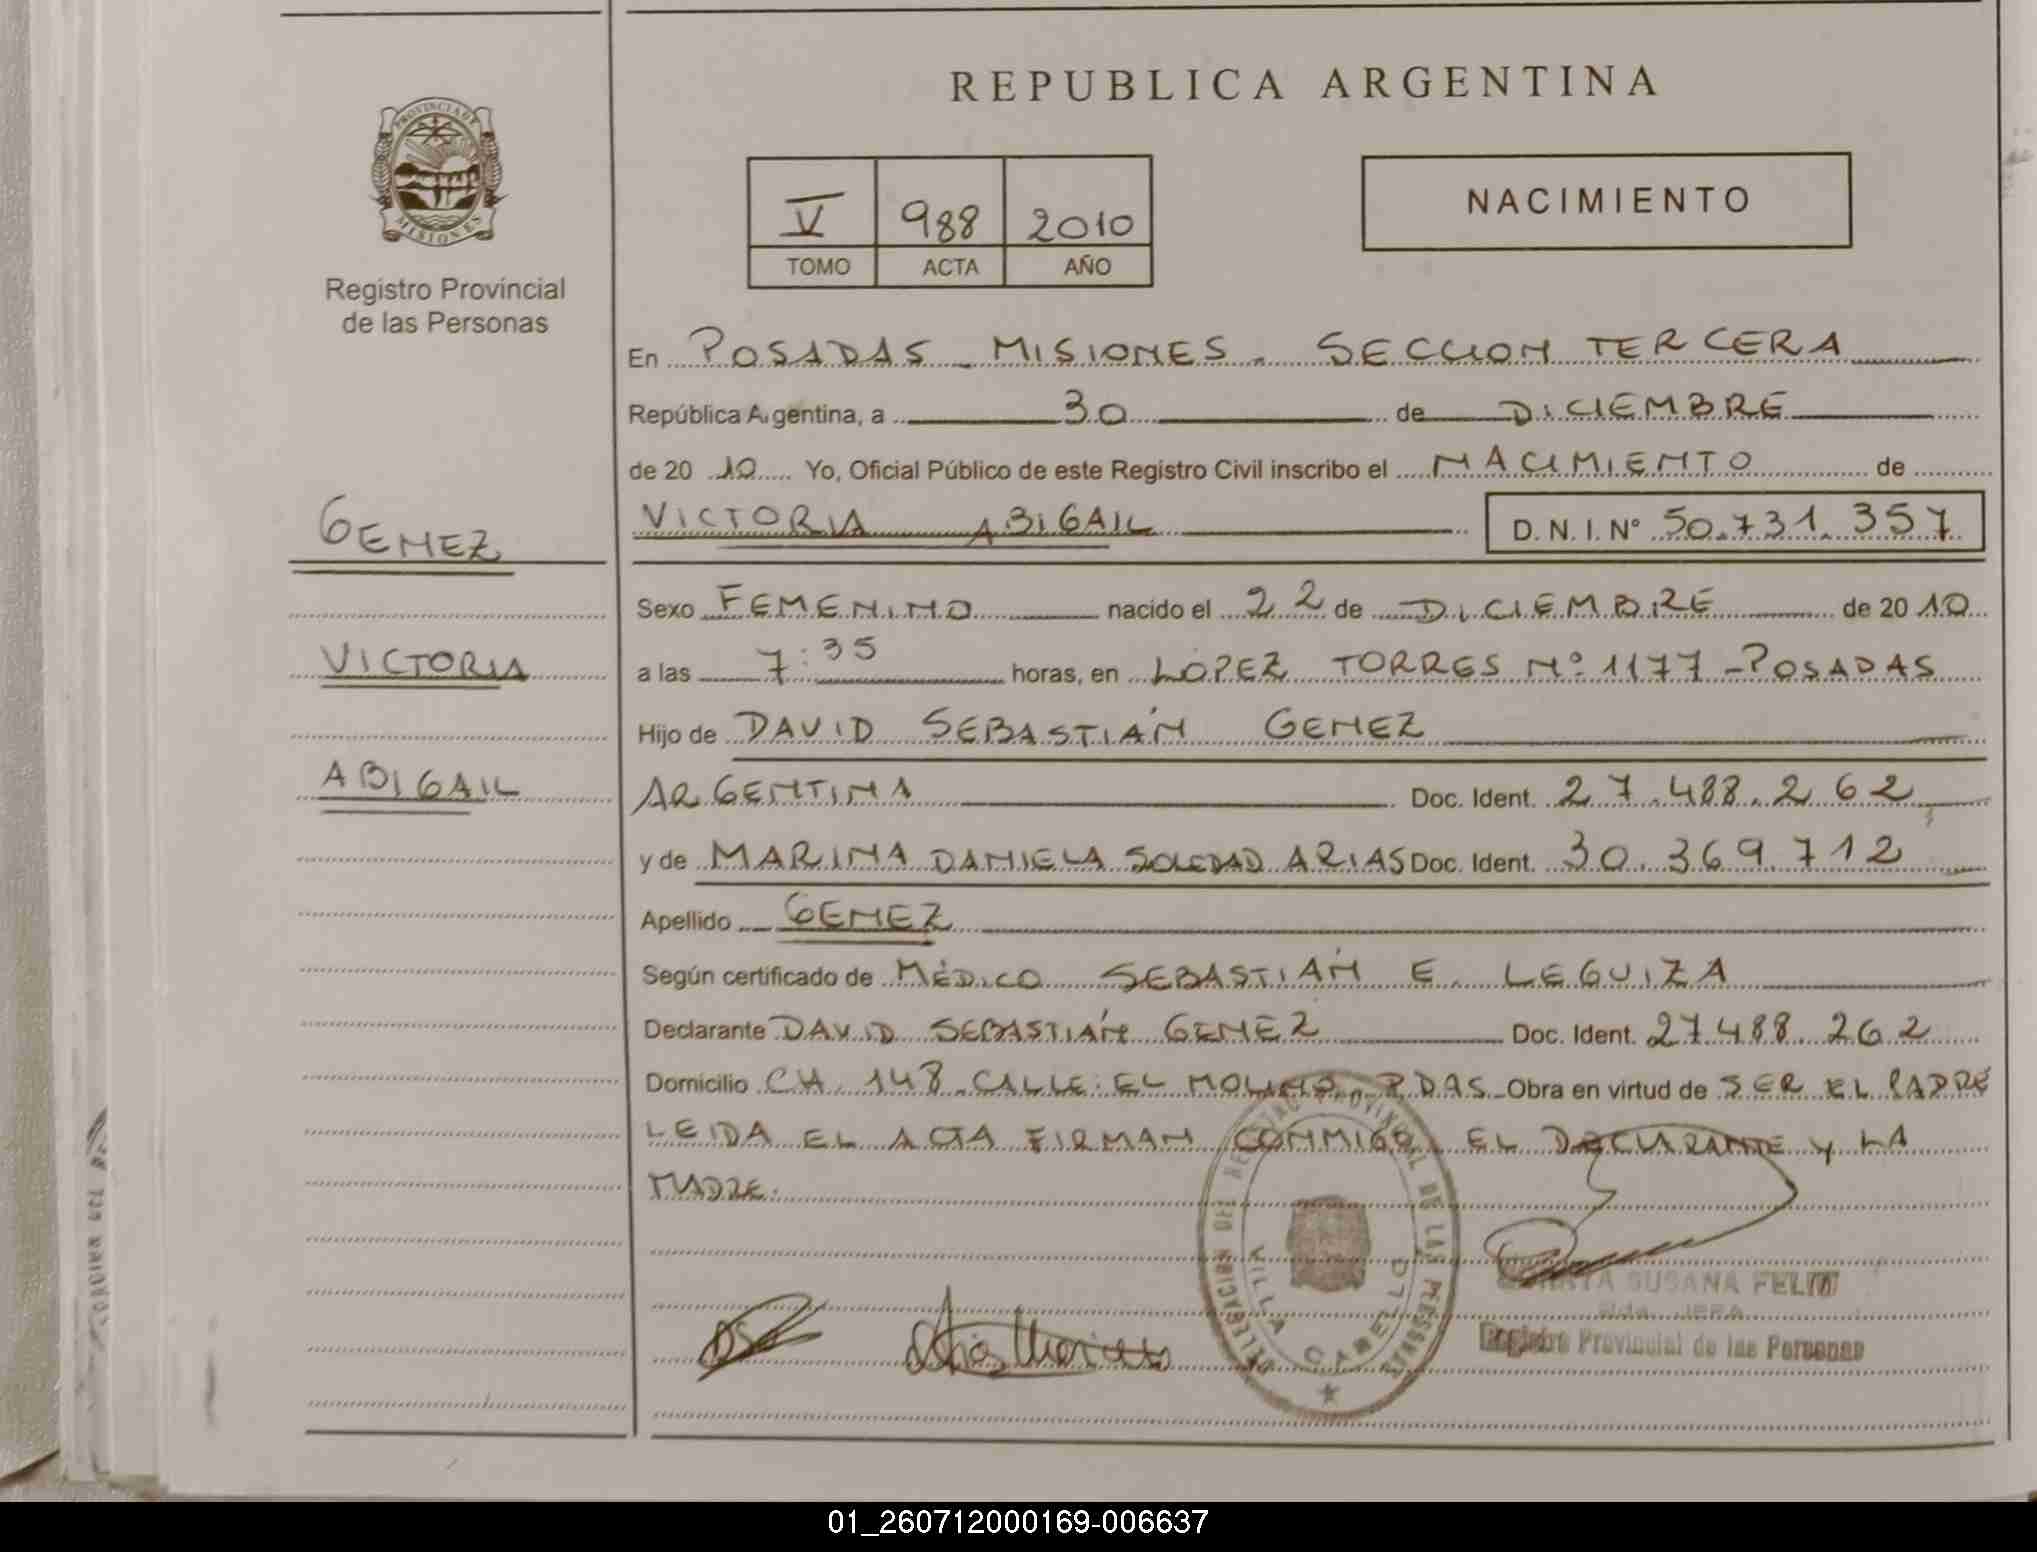 REPUBLICA ARGENTINA
PROVINCIA DE
MISIONES
Registro Provincial
de las Personas
V 988 2010
TOMO ACTA AÑO
NACIMIENTO
En POSADAS - MISIONES. SECCION TERCERA
República Argentina, a 30 de DICIEMBRE
de 20 10 Yo, Oficial Público de este Registro Civil inscribo el NACIMIENTO de
VICTORIA ABIGAIL D. N. I. Nº 50.731.357
GENEZ
VICTORIA
ABIGAIL
Sexo FEMENINO nacido el 22 de DICIEMBRE de 20 10
a las 7:35 horas, en LOPEZ TORRES Nº 1177 - POSADAS
Hijo de DAVID SEBASTIÁN GENEZ
ARGENTINA Doc. Ident. 27.488.262
y de MARINA DANIELA SOLEDAD ARIAS Doc. Ident. 30.369.712
Apellido GENEZ
Según certificado de MÉDICO SEBASTIÁN E. LEGUIZA
Declarante DAVID SEBASTIÁN GENEZ Doc. Ident. 27.488.262
Domicilio CH. 148. CALLE: EL MOLINO. PDAS. Obra en virtud de SER EL PADRE
LEIDA EL ACTA FIRMAN CONMIGO EL DECLARANTE Y LA
MADRE.
DELEGACION DEL REGISTRO PROVINCIAL DE LAS PERSONAS
VILLA CABELLO
SUSANA FELIU
JEFA
Registro Provincial de las Personas
01_260712000169-006637